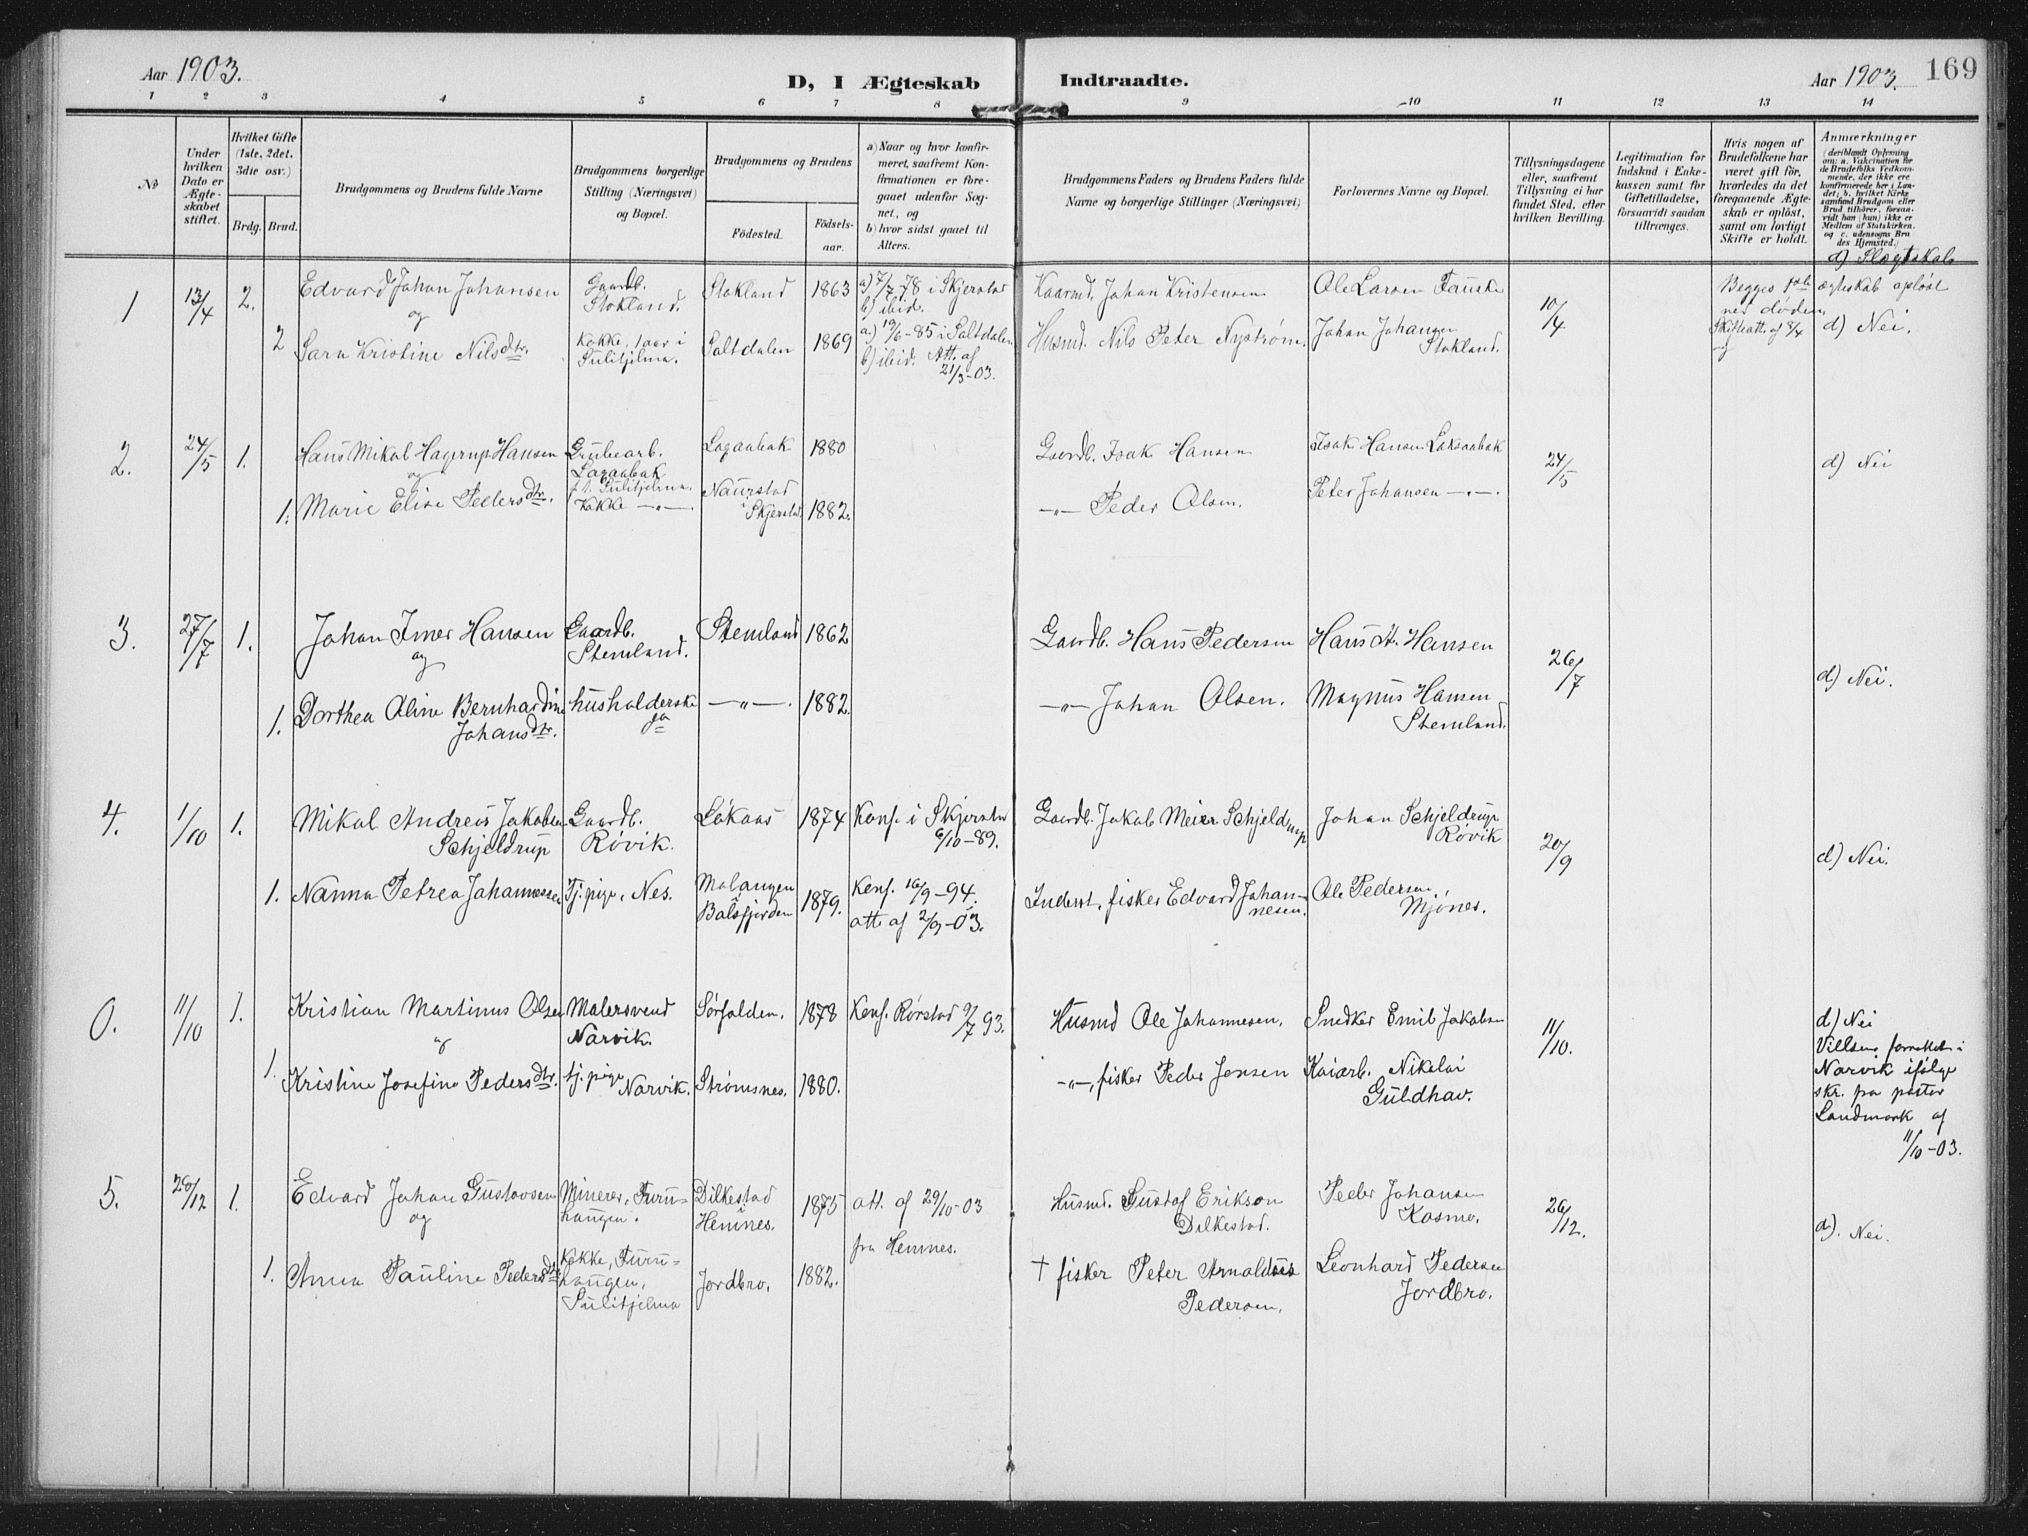 Aar 1903.
D, I Ægteskab
Indtraadte.
Aar 1903.
169
1 2 3 4 5 6 7 8 9 10 11 12 13 14
№
Under hvilken Dato er Ægteskabet stiftet.
Hvilket Gifte (1ste, 2det, 3die osv.)
Brdg. Brud.
Brudgommens og Brudens fulde Navne
Brudgommens borgerlige Stilling (Næringsvei) og Bopæl.
Brudgommens og Brudens
Fødested.
Fødselsaar.
a) Naar og hvor konfirmeret, saafremt Konfirmationen er foregaaet udenfor Sognet, og
b) hvor sidst gaaet til Alters.
Brudgommens Faders og Brudens Faders fulde Navne og borgerlige Stillinger (Næringsvei)
Forlovernes Navne og Bopæl.
Tillysningsdagene eller, saafremt Tillysning ei har fundet Sted, efter hvilken Bevilling.
Legitimation for Indskud i Enkekassen samt for Giftetilladelse, forsaavidt saadan tiltrænges.
Hvis nogen af Brudefolkene har været gift før, hvorledes da det foregaaende Ægteskab er opløst, samt om lovligt Skifte er holdt.
Anmærkninger
(deriblandt Oplysning om: a. Vakcination for de Brudefolks Vedkommende, der ikke ere konfirmerede her i Landet; b. hvilket Kirkesamfund Brudgom eller Brud tilhører, forsaavidt han (hun) ikke er Medlem af Statskirken. og c. udensogns Brudes Hjemsted.)
d) Slægtskab
1 13/4 2. Edvard Johan Johansen Gaardb. Stokland. Stokland 1863 a) 7/7 78 i Skjerstad b) ibid. Kaarmd. Johan Kristensen Ole Larsen Fauske 10/4 Begges 1ste ægteskab opløst ved døden
og
2 Sara Kristine Nilsdtr. Kokke, 1 aar i Sulitjelma. Saltdalen 1869 a) 19/6-85 i Saltdalen b) ibid. Att. af 21/3-03. Husmd. Nils Peter Nystrøm. Johan Johansen Stokland. Skifteatt. af 8/4 d) Nei.
2. 24/5 1. Hans Mikal Hagerup Hansen Grubearb. 1880 Gaardb. Isak Hansen Isak Hansen 24/5 d) Nei
og
1. Marie Elise Pedersdtr. Kokke —„— Naurstad i Skjerstad 1882. —„— Peder Olsen. Peter Johansen —„—.
3. 27/7 1. Johan Imer Hansen Gaardb. Stemland. Stemland 1862 Gaardb. Hans Pedersen Hans A. Hansen 26/7 d) Nei.
og
1. Dorthea Oline Bernhardine Johansdtr. husholderske —„—. 1882. —„— Johan Olsen. Magnus Hansen Stemland.
4. 1/10 1. Mikal Andreas Jakobsen Schjeldrup Gaardb. Røvik. Løkaas 1874 Konf. i Skjerstad 6/10-89. Gaardb. Jakob Meier Schjeldrup Johan Schjeldrup Røvik 20/9 d) Nei.
1. Nanna Petrea Johannessen Tj. pige, Nes. Malangen Balsfjorden 1879. Konf. 16/9-94. att. af 2/9-03. Inderst, fisker Edvard Johannesen. Ole Pedersen, Mjønes.
0. 11/10 1. Kristian Martinus Olsen Malersvend Narvik. Sørfolden. 1878 Konf. Rørstad 9/7 93. Husmd Ole Johannesen. Snedker Emil Jakobsen 11/10. d) Nei
og
1. Kristine Josefine Pedersdtr. tj. pige Narvik. Strømsnes. 1880. —„—, fisker Peder Jensen Kaiarb. Nikolai Guldhav.
Vielsen forrettet i Narvik ifølge skr. fra pastor Landmark af 11/10-03.
5. 20/12 1. Edvard Johan Gustavsen Minerer, Furuhaugen. Dilkestad i Hemnes. 1875 att. af 29/10-03 fra Hemnes. Husmd. Gustaf Erikson Dilkestad. Peder Johansen Kosmo. 26/12. d). Nei.
og
1. Anna Pauline Pedersdtr Kokke, Furuhaugen, Sulitjelma Jordbro. 1882. † fisker Peter Arnoldus Pedersen. Leonhard Pedersen Jordbro.